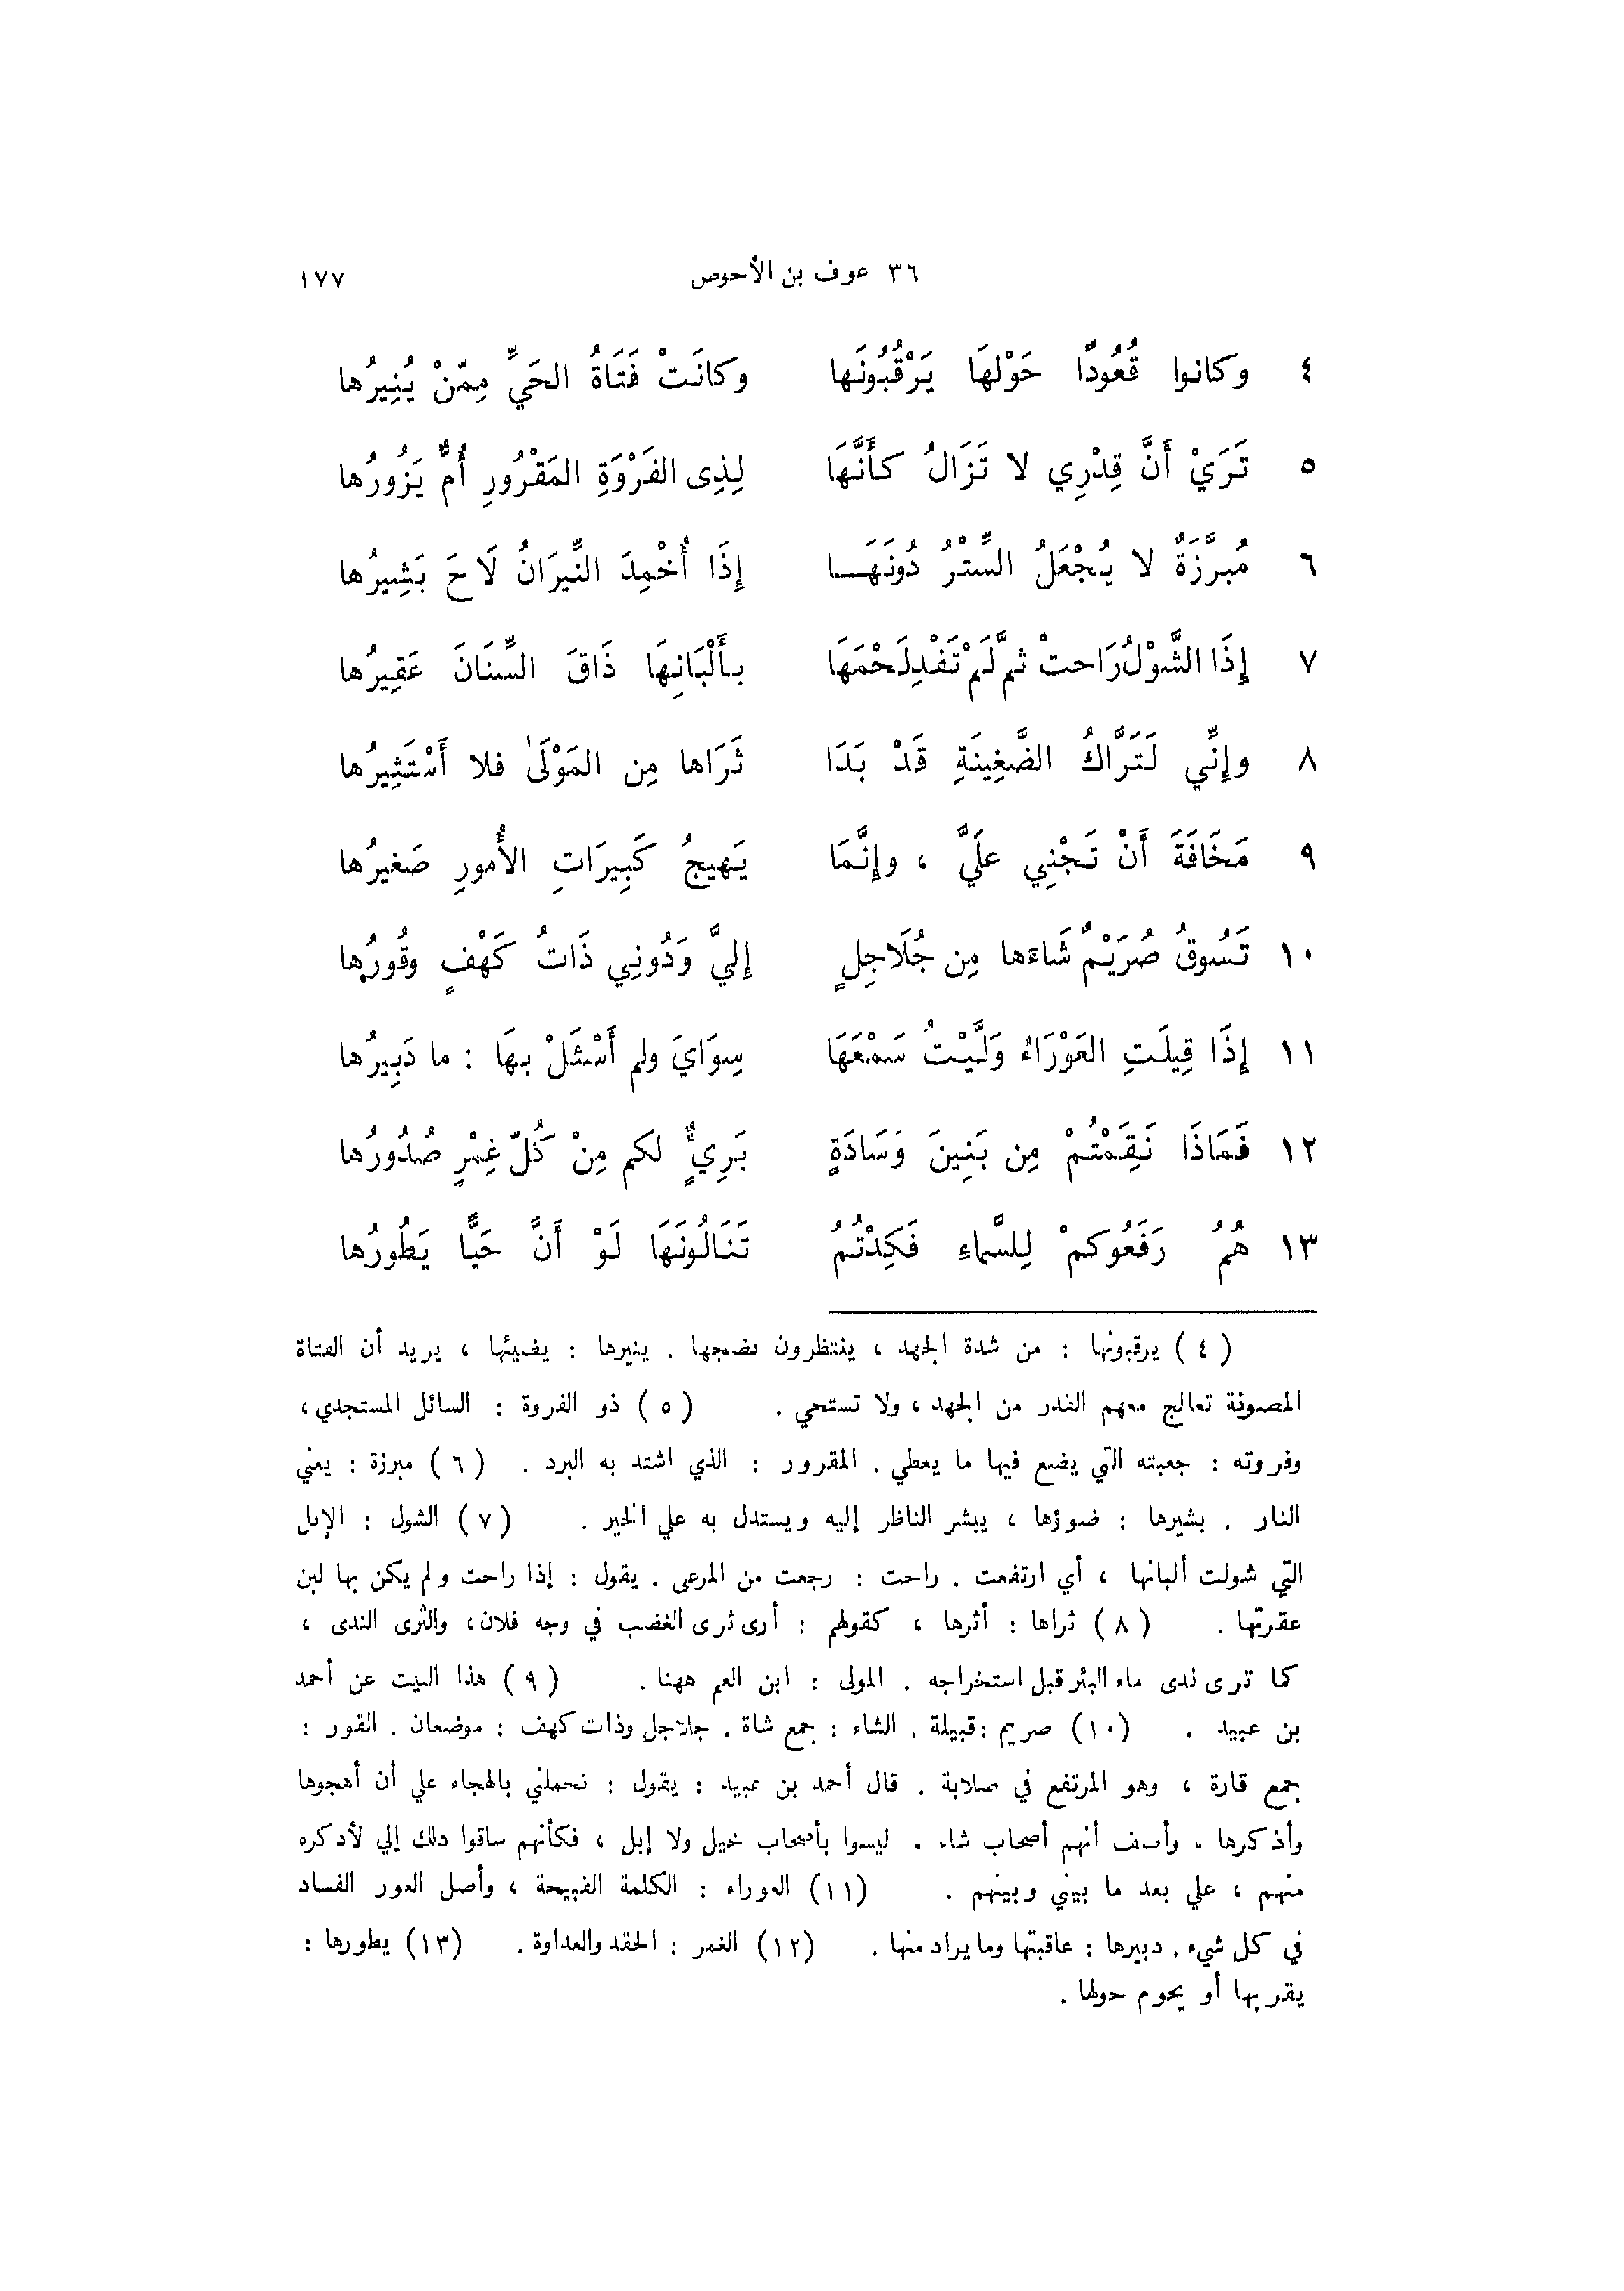 ٣٦ عوف بن الأحوص ١٧٧
٤ وكانوا قُعُودًا حَوْلهَا يَرْقُبُونَها وكانَتْ فَتَاةُ الحَيِّ مِمّنْ يُنِيرُها
٥ تَرَيْ أَنَّ قِدْرِي لا تَزَالُ كأَنَّهَا لِذِى الفَرْوَةِ المَقْرُورِ أُمٌّ يَزُورُها
٦ مُبرَّزَةٌ لا يُجْعَلُ السِّتْرُ دُونَهَا إِذَا أُخْمِدَ النِّيرَانُ لَاحَ بَشِيرُها
٧ إِذَا الشَّوْلُ رَاحتْ ثمَّ لَمْ تَفْدِ لَحْمَهَا بأَلْبَانِهَا ذَاقَ السِّنَانَ عَقِيرُها
٨ وإِنِّي لَتَرَّاكُ الضَّغِينَةِ قَدْ بَدَا ثَرَاها مِن المَوْلَىٰ فلا أَسْتَثِيرُها
٩ مَخَافَةَ أَنْ تَجْنِي علَيَّ ، وإِنَّمَا يَهيجُ كَبِيرَاتِ الأُمورِ صَغيرُها
١٠ تَسُوقُ صُرَيْمٌ شَاءَها مِن جُلَاجِلٍ إِليَّ وَدُونِي ذَاتُ كَهْفٍ وقُورُها
١١ إِذَا قِيلَتِ العَوْرَاءُ وَلَّيْتُ سَمْعَهَا سِوَايَ ولم أَسْئَلْ بهَا : ما دَبِيرُها
١٢ فَمَاذَا نَقِمْتُمْ مِن بَنِينَ وَسَادَةٍ بَرِيءٌ لكم مِنْ كُلّ غِمْرٍ صُدُورُها
١٣ هُمُ رَفَعُوكمْ لِلسَّماءِ فَكِدْتُمُ تَنَالُونَهَا لَوْ أَنَّ حَيًّا يَطُورُها
( ٤ ) يرقبونها : من شدة الجهد ، ينتظرون نضجها . ينيرها : يضيئها ، يريد أن الفتاة
المصونة تعالج معهم القدر من الجهد ، ولا تستحي . ( ٥ ) ذو الفروة : السائل المستجدي ،
وفروته : جعبته التي يضع فيها ما يعطي . المقرور : الذي اشتد به البرد . ( ٦ ) مبرزة : يعني
النار . بشيرها : ضوؤها ، يبشر الناظر إليه ويستدل به علي الخير . ( ٧ ) الشول : الإبل
التي شولت ألبانها ، أي ارتفعت . راحت : رجعت من المرعى . يقول : إذا راحت ولم يكن بها لبن
عقرتها . ( ٨ ) ثراها : أثرها ، كقولهم : أرى ثرى الغضب في وجه فلان ، والثرى الندى ،
كما ترى ندى ماء البئر قبل استخراجه . المولى : ابن العم ههنا . ( ٩ ) هذا البيت عن أحمد
بن عبيد . (١٠) صريم : قبيلة . الشاء : جمع شاة . جلاجل وذات كهف : موضعان . القور :
جمع قارة ، وهو المرتفع في صلابة . قال أحمد بن عبيد : يقول : تحملني بالهجاء علي أن أهجوها
وأذكرها . وأصف أنهم أصحاب شاء . ليسوا بأصحاب خيل ولا إبل ، فكأنهم ساقوا ذلك إلي لأذكره
منهم ، علي بعد ما بيني وبينهم . (١١) العوراء : الكلمة القبيحة ، وأصل العور الفساد
في كل شيء . دبيرها : عاقبتها وما يراد منها . (١٢) الغمر : الحقد والعداوة . (١٣) يطورها :
يقربها أو يحوم حولها .